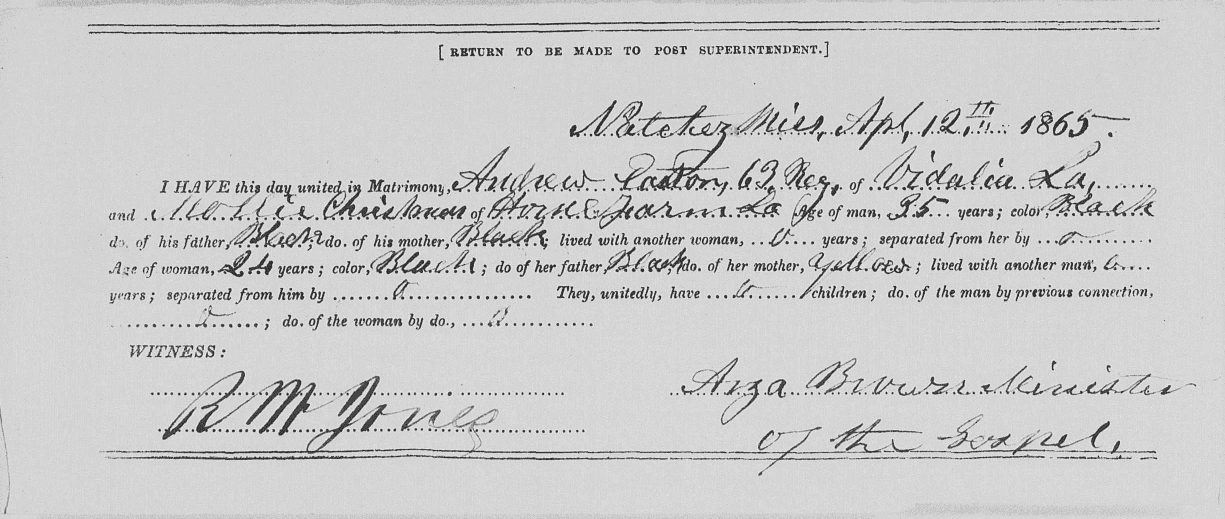 [ RETURN TO BE MADE TO POST SUPERINTENDENT.]
Natchez Miss, Apl, 12, 1865.
I HAVE this day united in Matrimony, Andrew 63, Reg, of Vidalia La,
and Mollie Christmas of Horne Farm La Age of man, 35 years; color, Black
do. of his father, Black do. of his mother, Black; lived with another woman, 0 years; separated from her by 0
Age of woman, 24 years; color, Black; do of her father, Black; do. of her mother, Yellow; lived with another man, 0
years; separated from him by 0 They, unitedly, have 0 children; do. of the man by previous connection,
0; do. of the woman by do., 0
WITNESS:
R M Jones
Arza Brown Minister
of the Gospel.